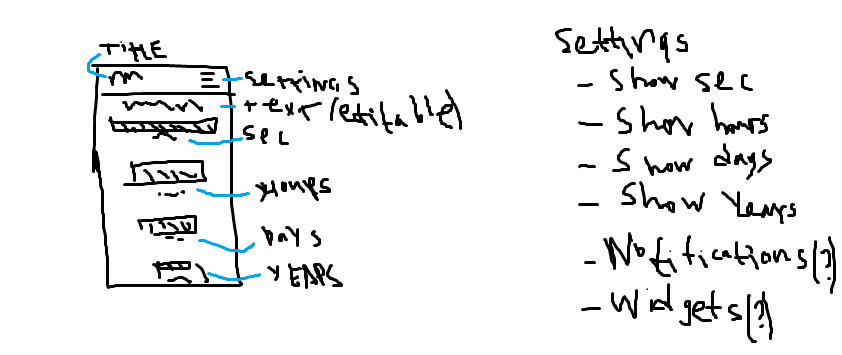 TITLE
SETTINGS
TEXT (editable)
SEC
HOURS
DAYS
YEARS
Settings
- Show sec
- Show hours
- Show days
- Show Years
- Notifications(?)
- Widgets(?)